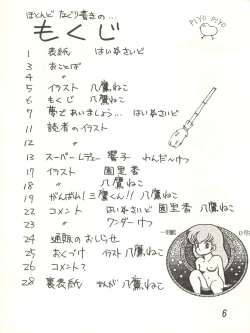 ほとんど なぐり書きの…
もくじ
PIYO PIYO
1 表紙 はいぬさいど
3 おことば
4 〃
5 イラスト 八鷹ねこ
6 もくじ 八鷹ねこ
7 夢であいましょう… はいぬさいど
11 読者のイラスト
12 〃
13 スーパーLデェー 響子 わんだ〜けつ
17 イラスト 園里香
18 〃 八鷹ねこ
19 がんばれ!三鷹くん!! 八鷹ねこ
22 コメント はいぬさいど 園里香 八鷹ねこ
23 〃 ワンダーけつ
24 通販のおしらせ
25 おくづけ イラスト 八鷹ねこ
26 コメント?
28 裏表紙 まんが 八鷹ねこ
6